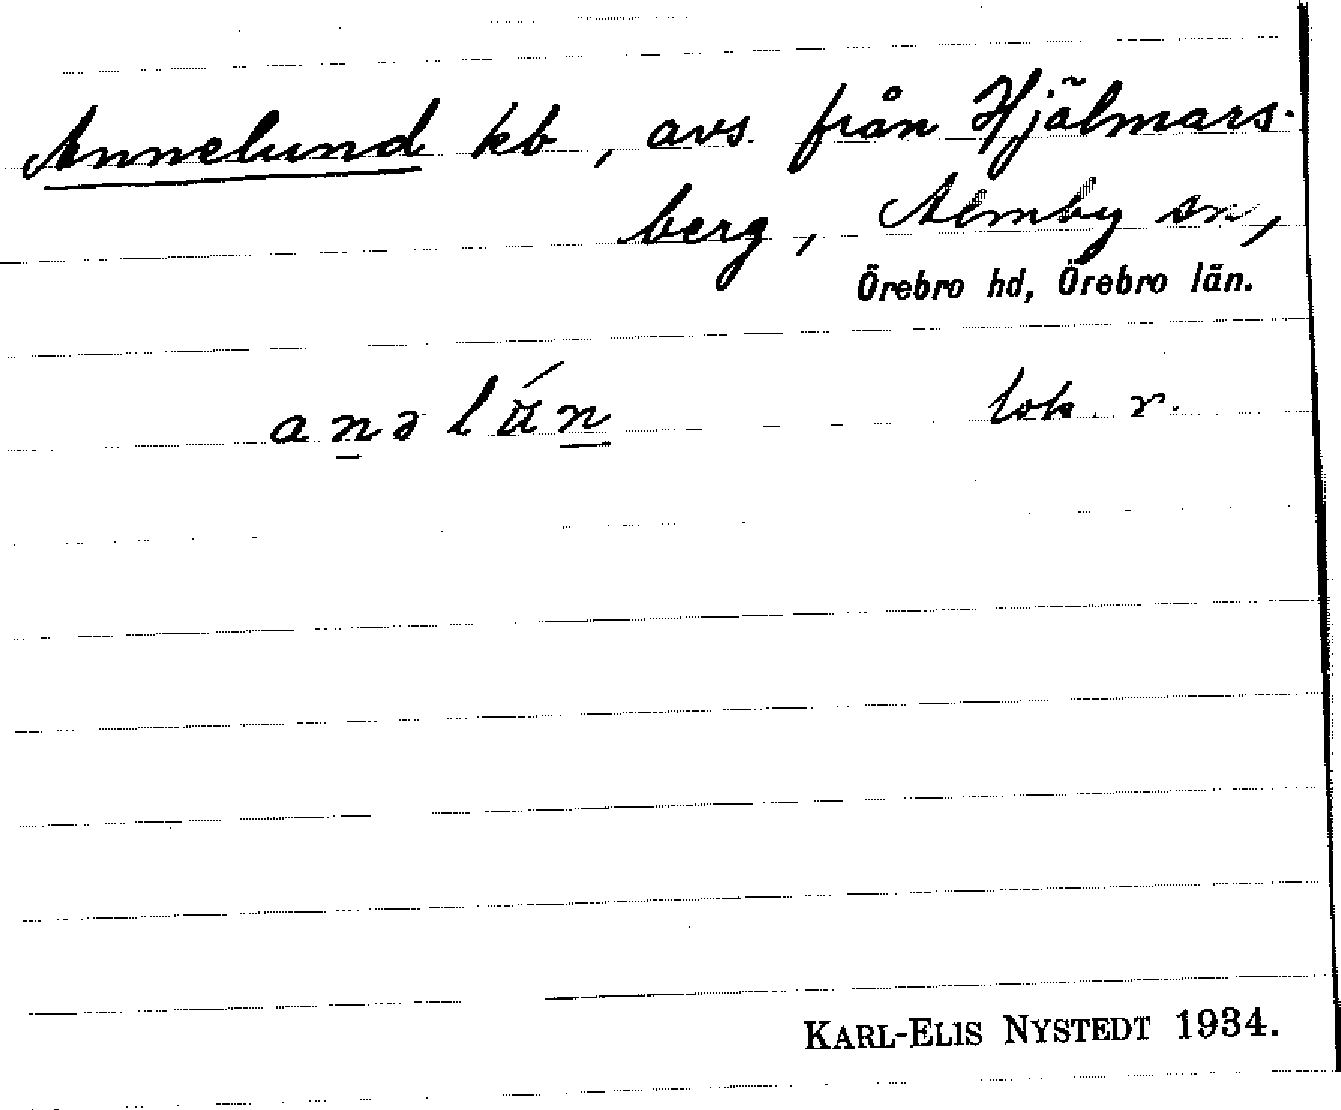 Annelund kb, avs. från Hjälmars-
berg, Almby sn,
Örebro hd, Örebro län.
anəlún lok. r.
KARL-ELIS NYSTEDT 1934.